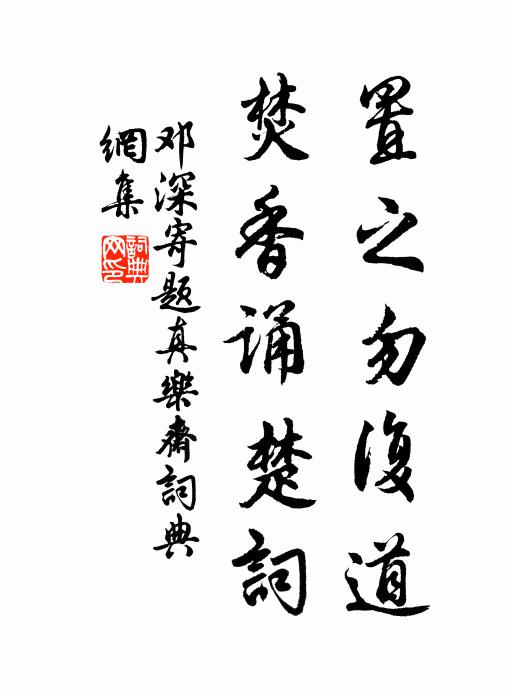 置之勿復道
焚香诵楚詞
邓深寄题真樂齋詞典
網集
詞典
网印